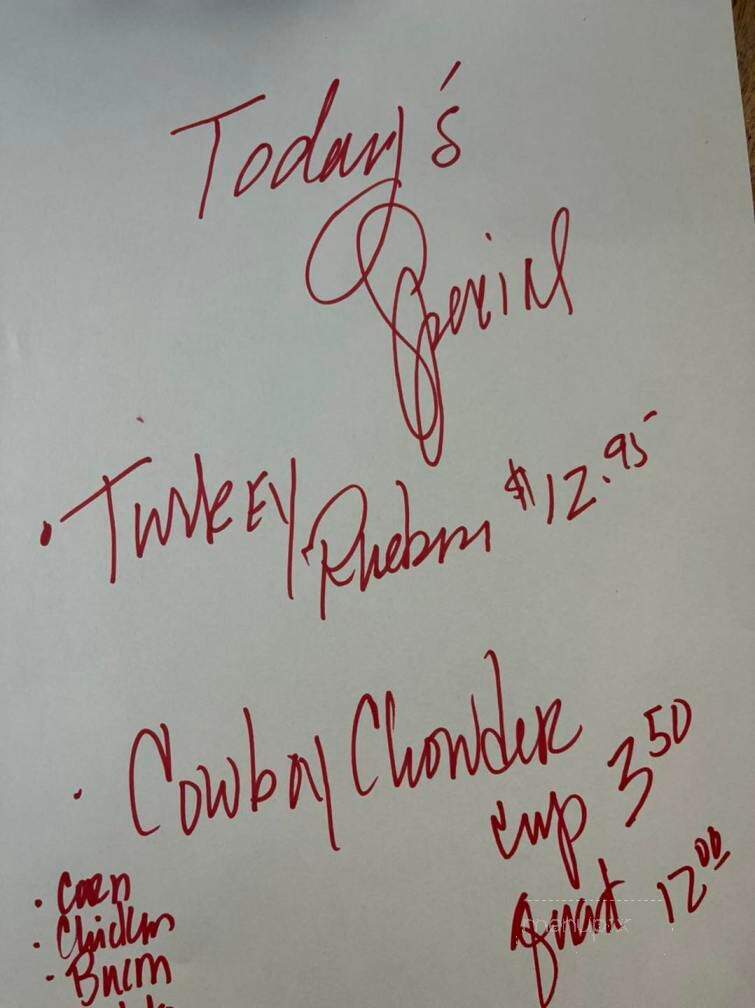 Today's
Special
· Turkey Rueben $12.95
· Cowboy Chowder
cup 3.50
Quart 12.00
· Corn
· Chicken
· Bacon